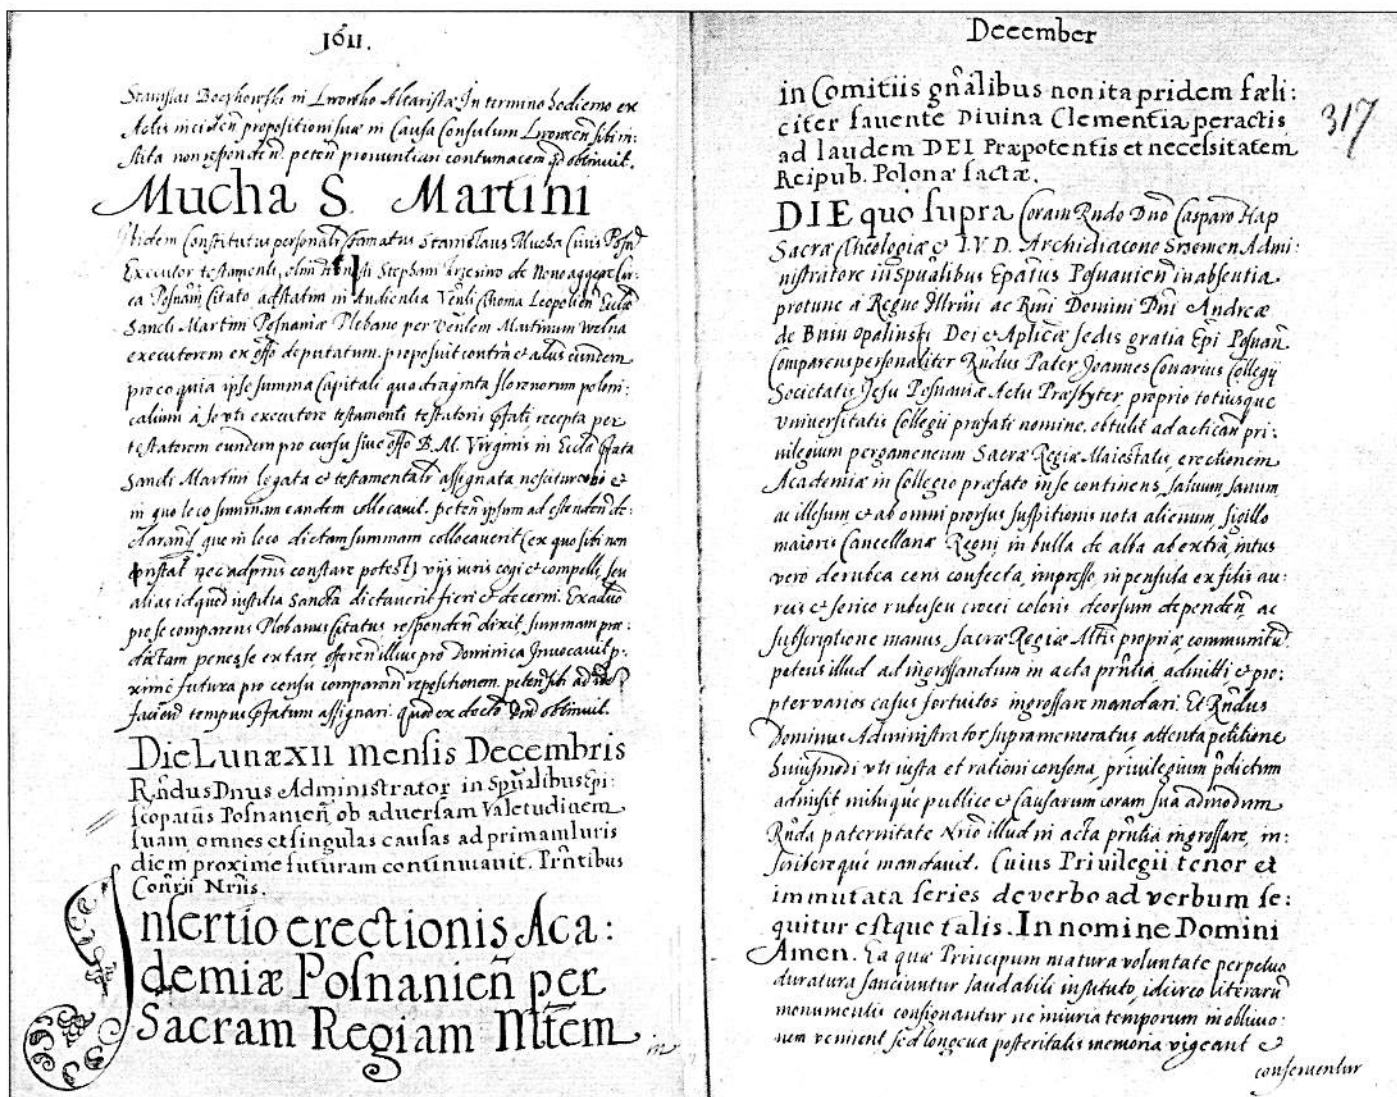 1611.
Stanislai Boczkowski in Lwowko Altaristæ. In termino hodierno ex
Actis inciden̄ propositioni suæ in Causa Consulum Lwowen̄ sibi in:
stita non responden̄. peten̄ pronuntiari contumacem qd̄ obtinuit.
Mucha S. Martini
Ibidem Constitutus personalr̄ famatus Stanislaus Mucha Civis Posn̄
Executor testamenti, olim Stephani de Novo aggere Cir:
ca Posnam̄ Citato ad statim in Audientia Ven̄li Thoma Leopolien̄ Eccl̄æ
Sancti Martini Posnaniæ Plebano per Ven̄lem Martinum Welna
executorem ex offō deputatum. proposuit contra et adv̄s eundem
pro eo quia ipse summa Capitali quadraginta florenorum poloni:
calium à se uti executore testamenti testatoris p̄fati recepta per
testatorem eundem pro cursu sive offō B. M. Virginis in Eccl̄a p̄fata
Sancti Martini legata et testamentalr̄ assignata nescitur ubi et
in quo loco summam eandem collocavit. peten̄ ipsum ad ostenden̄ de:
claran̄ que in loco dictam summam collocaverit (ex quo sibi non
constat nec ad pn̄s constare potest) viis iuris cogi et compelli, seu
alias id quod iustitia Sancta dictaverit fieri et decerni. Ex adv̄o
pro se comparens Plebanus Citatus responden̄ dixit, summam præ:
dictam penes se extare, offeren̄ illius pro Dominica Invocavit p:
ximè futura pro censu comparan̄ repositionem. peten̄ sibi ad id
facien̄ tempus p̄fatum assignari. quod ex decto Dn̄i obtinuit.
Die Lunæ XII mensis Decembris
Rn̄dus Dnus Administrator in Spūalibus Epi:
scopatus Posnanien̄ ob adversam Valetudinem
suam omnes et singulas causas ad primam Iuris
diem proxime futuram continuavit. Prn̄tibus
Con̄rii Nr̄iis.
Insertio erectionis Aca:
demiæ Posnanien̄ per
Sacram Regiam Mtem
in
December
317
in Comitiis gn̄alibus non ita pridem fæli:
citer favente Divina Clementia peractis
ad laudem DEI Præpotentis et necessitatem
Reipub. Polonæ factæ.
DIE quo supra Coram Rn̄do Dn̄o Casparo Hap
Sacræ Theologiæ et I. V. D. Archidiacono Sremen. Admi:
nistratore in Spūalibus Ep̄atus Posnanien̄ in absentia
protunc à Regno Illr̄mi ac Rm̄i Domini Dn̄i Andreæ
de Bnin Opalinski Dei et Aplicæ sedis gratia Ep̄i Posnan̄
Comparens personaliter Rn̄dus Pater Joannes Conarius Collegij
Societatis Jesu Posnaniæ Actu Præsbyter, proprio totiusque
Universitatis Collegii præfati nomine. obtulit ad actican̄ pri:
vilegium pergameneum Sacræ Regiæ Maiestatis, erectionem
Academiæ in Collegio præfato in se continens, salvum, sanum
ac illesum, et ab omni prorsus suspitionis nota alienum, sigillo
maioris Cancellariæ Regni, in bulla de alba ab extrà, intus
vero de rubea ceris confecta, impresso, in pensula ex filis au:
reis et serico rubeseu crocei coloris deorsum dependen̄, ac
subscriptione manus, Sacræ Regiæ Mttis propriæ communitū.
petens illud ad ingrossandum in acta prn̄tia admitti et pro:
pter varios casus fortuitos ingrossare mandari. Et Rn̄dus
Dominus Administrator supramemoratus, attenta petitione
huiusmodi uti iusta et rationi consona, privilegium p̄dictum
admisit mihique publico et Causarum coram sua admodum
Rn̄da paternitate Nr̄io illud in acta prn̄tia ingrossare, in:
scribereque mandavit. Cuius Privilegii tenor et
immutata series de verbo ad verbum se:
quitur estque talis. In nomine Domini
Amen. Ea quæ Principum matura voluntate perpetuo
duratura sanciuntur laudabili instituto, idcirco literarū
monumentis consignantur ne iniuria temporum in oblivio:
nem venirent, sed longæva posteritatis memoria vigeant et
conserventur